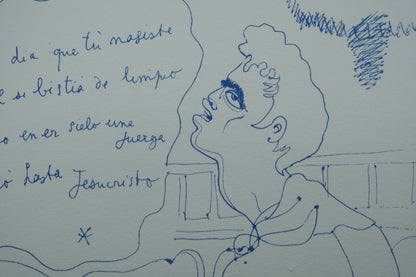 dia que tú nasiste
se bistiá de limpo
en er sielo une
juerga
hasta Jesucristo